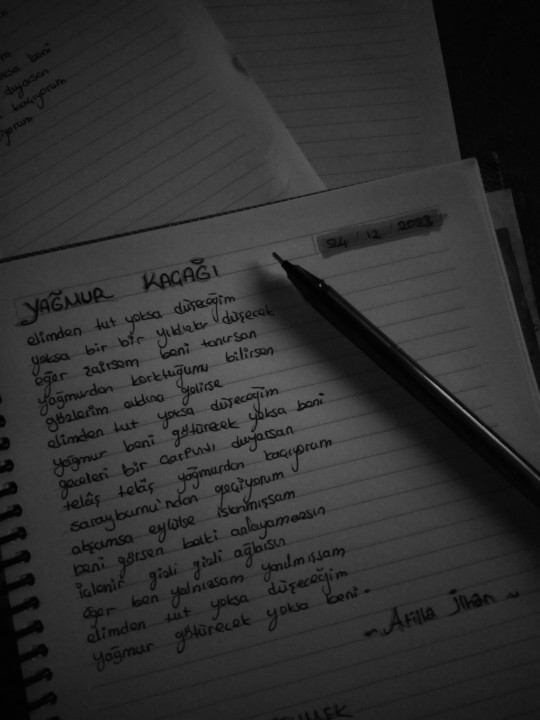 beni
duyarsan
kaçıyorum
24 / 12 / 2023
YAĞMUR KAÇAĞI
elimden tut yoksa düşeceğim
yoksa bir bir yıldızlar düşecek
eğer şairsem beni tanırsan
yağmurdan korktuğumu bilirsen
gözlerim aklına gelirse
elimden tut yoksa düşeceğim
yağmur beni götürecek yoksa beni
geceleri bir çarpıntı duyarsan
telâş telâş yağmurdan kaçıyorum
sarayburnu'ndan geçiyorum
akşamsa eylülse ıslanmışsam
beni görsen belki anlayamazsın
içlenir gizli gizli ağlarsın
eğer ben yalnızsam yanılmışsam
elimden tut yoksa düşeceğim
yağmur götürecek yoksa beni.
~ Atilla İlhan ~